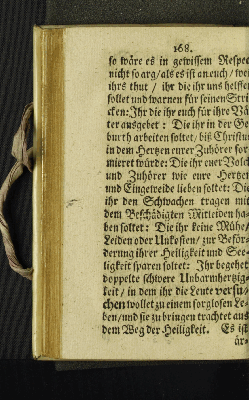 168.
so wäre es in gewissem Respec
nicht so arg / als es ist an euch / wen
ihrs thut / ihr die ihr uns helffen
sollet und warnen für seinen Stri
cken: Ihr die ihr euch für ihre Vä
ter ausgebet: Die ihr in der Ge
burth arbeiten soltet / biß Christus
in dem Hertzen eurer Zuhörer for
mieret würde: Die ihr euer Volck
und Zuhörer wie eure Hertzen
und Eingeweide lieben soltet: Die
ihr den Schwachen tragen und
dem Beschädigten Mitleiden ha-
ben soltet: Die ihr keine Mühe /
Leiden oder Unkosten / zur Beför-
derung ihrer Heiligkeit und See-
ligkeit sparen soltet: Ihr begehet
doppelte schwere Unbarmhertzig-
keit / in dem ihr die Leute versu-
chen wollet zu einem sorglosen Le-
ben / und sie zu bringen trachtet aus
dem Weg der Heiligkeit. Es ist
är-